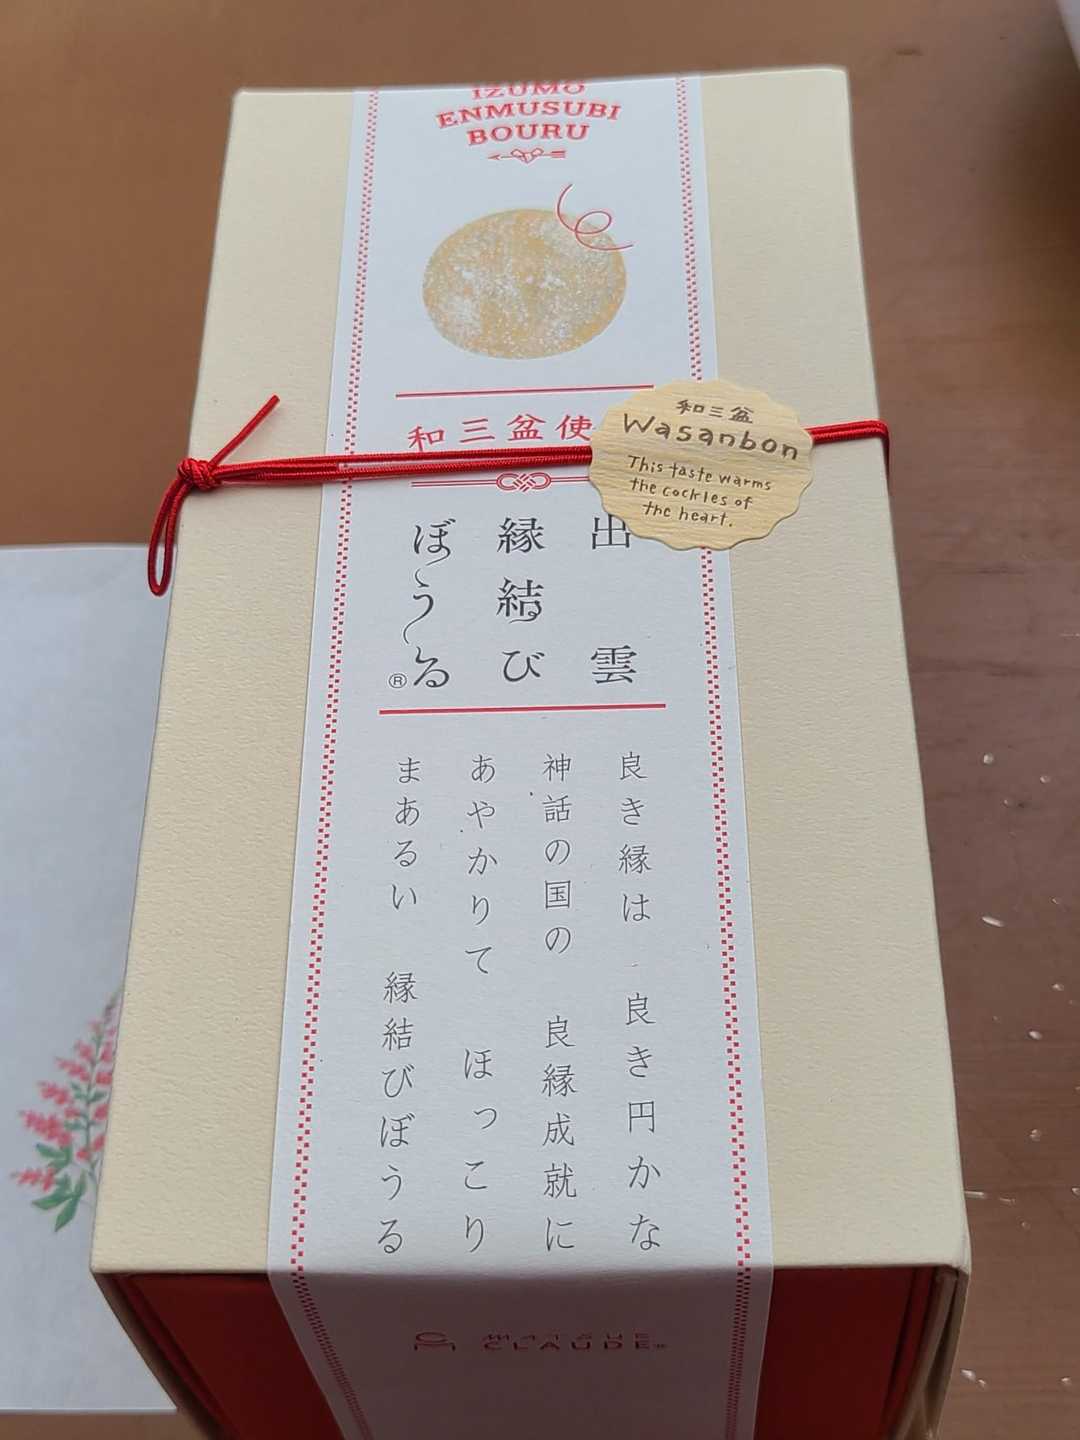 IZUMO
ENMUSUBI
BOURU
和三盆使
和三盆
Wasanbon
This taste warms
the cockles of
the heart.
出雲
縁結び
ぼうる
®
良き縁は 良き円かな
神話の国の 良縁成就に
あやかりて ほっこり
まあるい 縁結びぼうる
MATSUE
CLAUDE